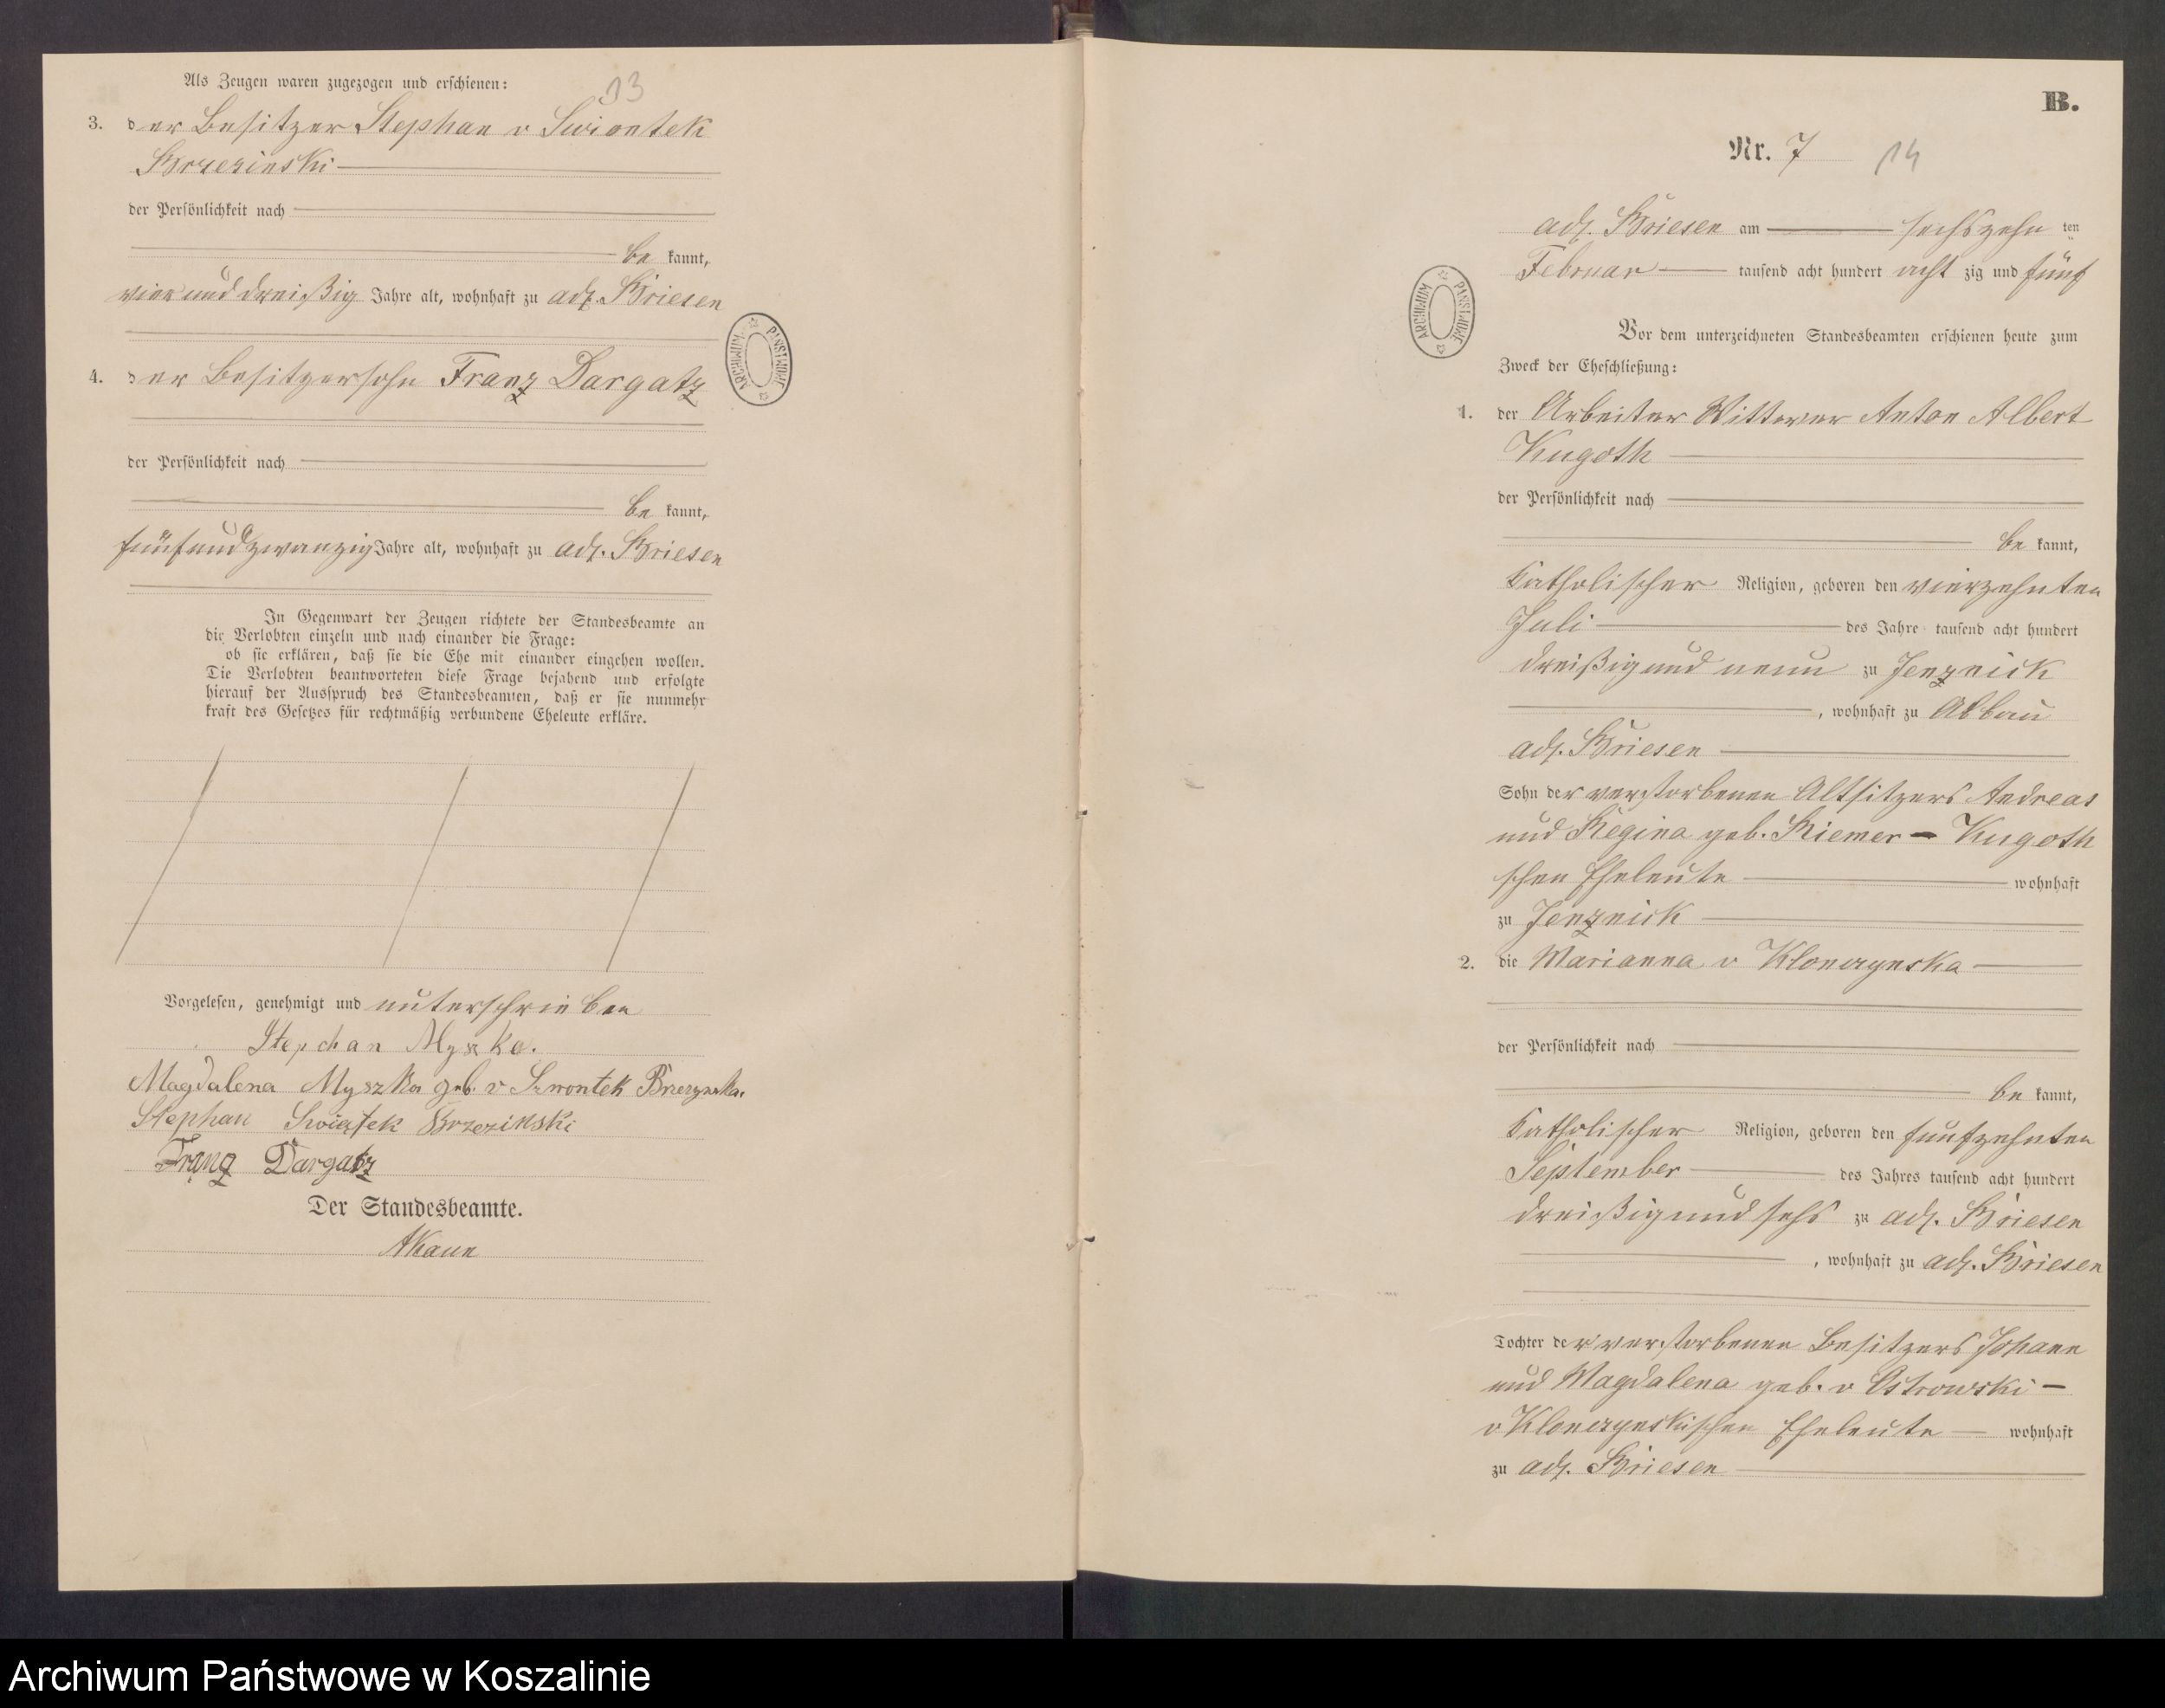 Als Zeugen waren zugezogen und erschienen:
13
3. der Besitzer Stephan v Swiontek
Brzezinski
der Persönlichkeit nach
be kannt,
vier und dreißig Jahre alt, wohnhaft zu adl. Briesen
4. der Besitzersohn Franz Dargatz
der Persönlichkeit nach
be kannt,
fünfundzwanzig Jahre alt, wohnhaft zu adl. Briesen
In Gegenwart der Zeugen richtete der Standesbeamte an
die Verlobten einzeln und nach einander die Frage:
ob sie erklären, daß sie die Ehe mit einander eingehen wollen.
Die Verlobten beantworteten diese Frage bejahend und erfolgte
hierauf der Ausspruch des Standesbeamten, daß er sie nunmehr
kraft des Gesetzes für rechtmäßig verbundene Eheleute erkläre.
Vorgelesen, genehmigt und unterschrieben
Stepchan Myszka.
Magdalena Myszka geb. v Brzezynska.
Stephan Swiątek Brzezinski
Franz Dargatz
Der Standesbeamte.
ARCHIWUM PAŃSTWOWE
B.
Nr. 7 14
adl. Briesen am sechszehn ten
Februar tausend acht hundert acht zig und fünf
Vor dem unterzeichneten Standesbeamten erschienen heute zum
Zweck der Eheschließung:
1. der Arbeiter Wittwer Anton Albert
Kugoth
der Persönlichkeit nach
be kannt,
katholischer Religion, geboren den vierzehnten
Juli des Jahre tausend acht hundert
dreißig und neun zu Jenznick
, wohnhaft zu Abbau
adl. Briesen
Sohn der verstorbenen Altsitzers Andreas
und Regina geb. Riemer - Kugoth
schen Eheleute wohnhaft
zu Jenznick
2. die Marianna v Klonczynska
der Persönlichkeit nach
be kannt,
katholischer Religion, geboren den fünfzehnten
September des Jahres tausend acht hundert
dreißig und sechs zu adl. Briesen
, wohnhaft zu adl. Briesen
Tochter der verstorbenen Besitzers Johann
und Magdalena geb. v Ostrowski -
v Klonczynskischen Eheleute wohnhaft
zu adl. Briesen
ARCHIWUM PAŃSTWOWE
Archiwum Państwowe w Koszalinie